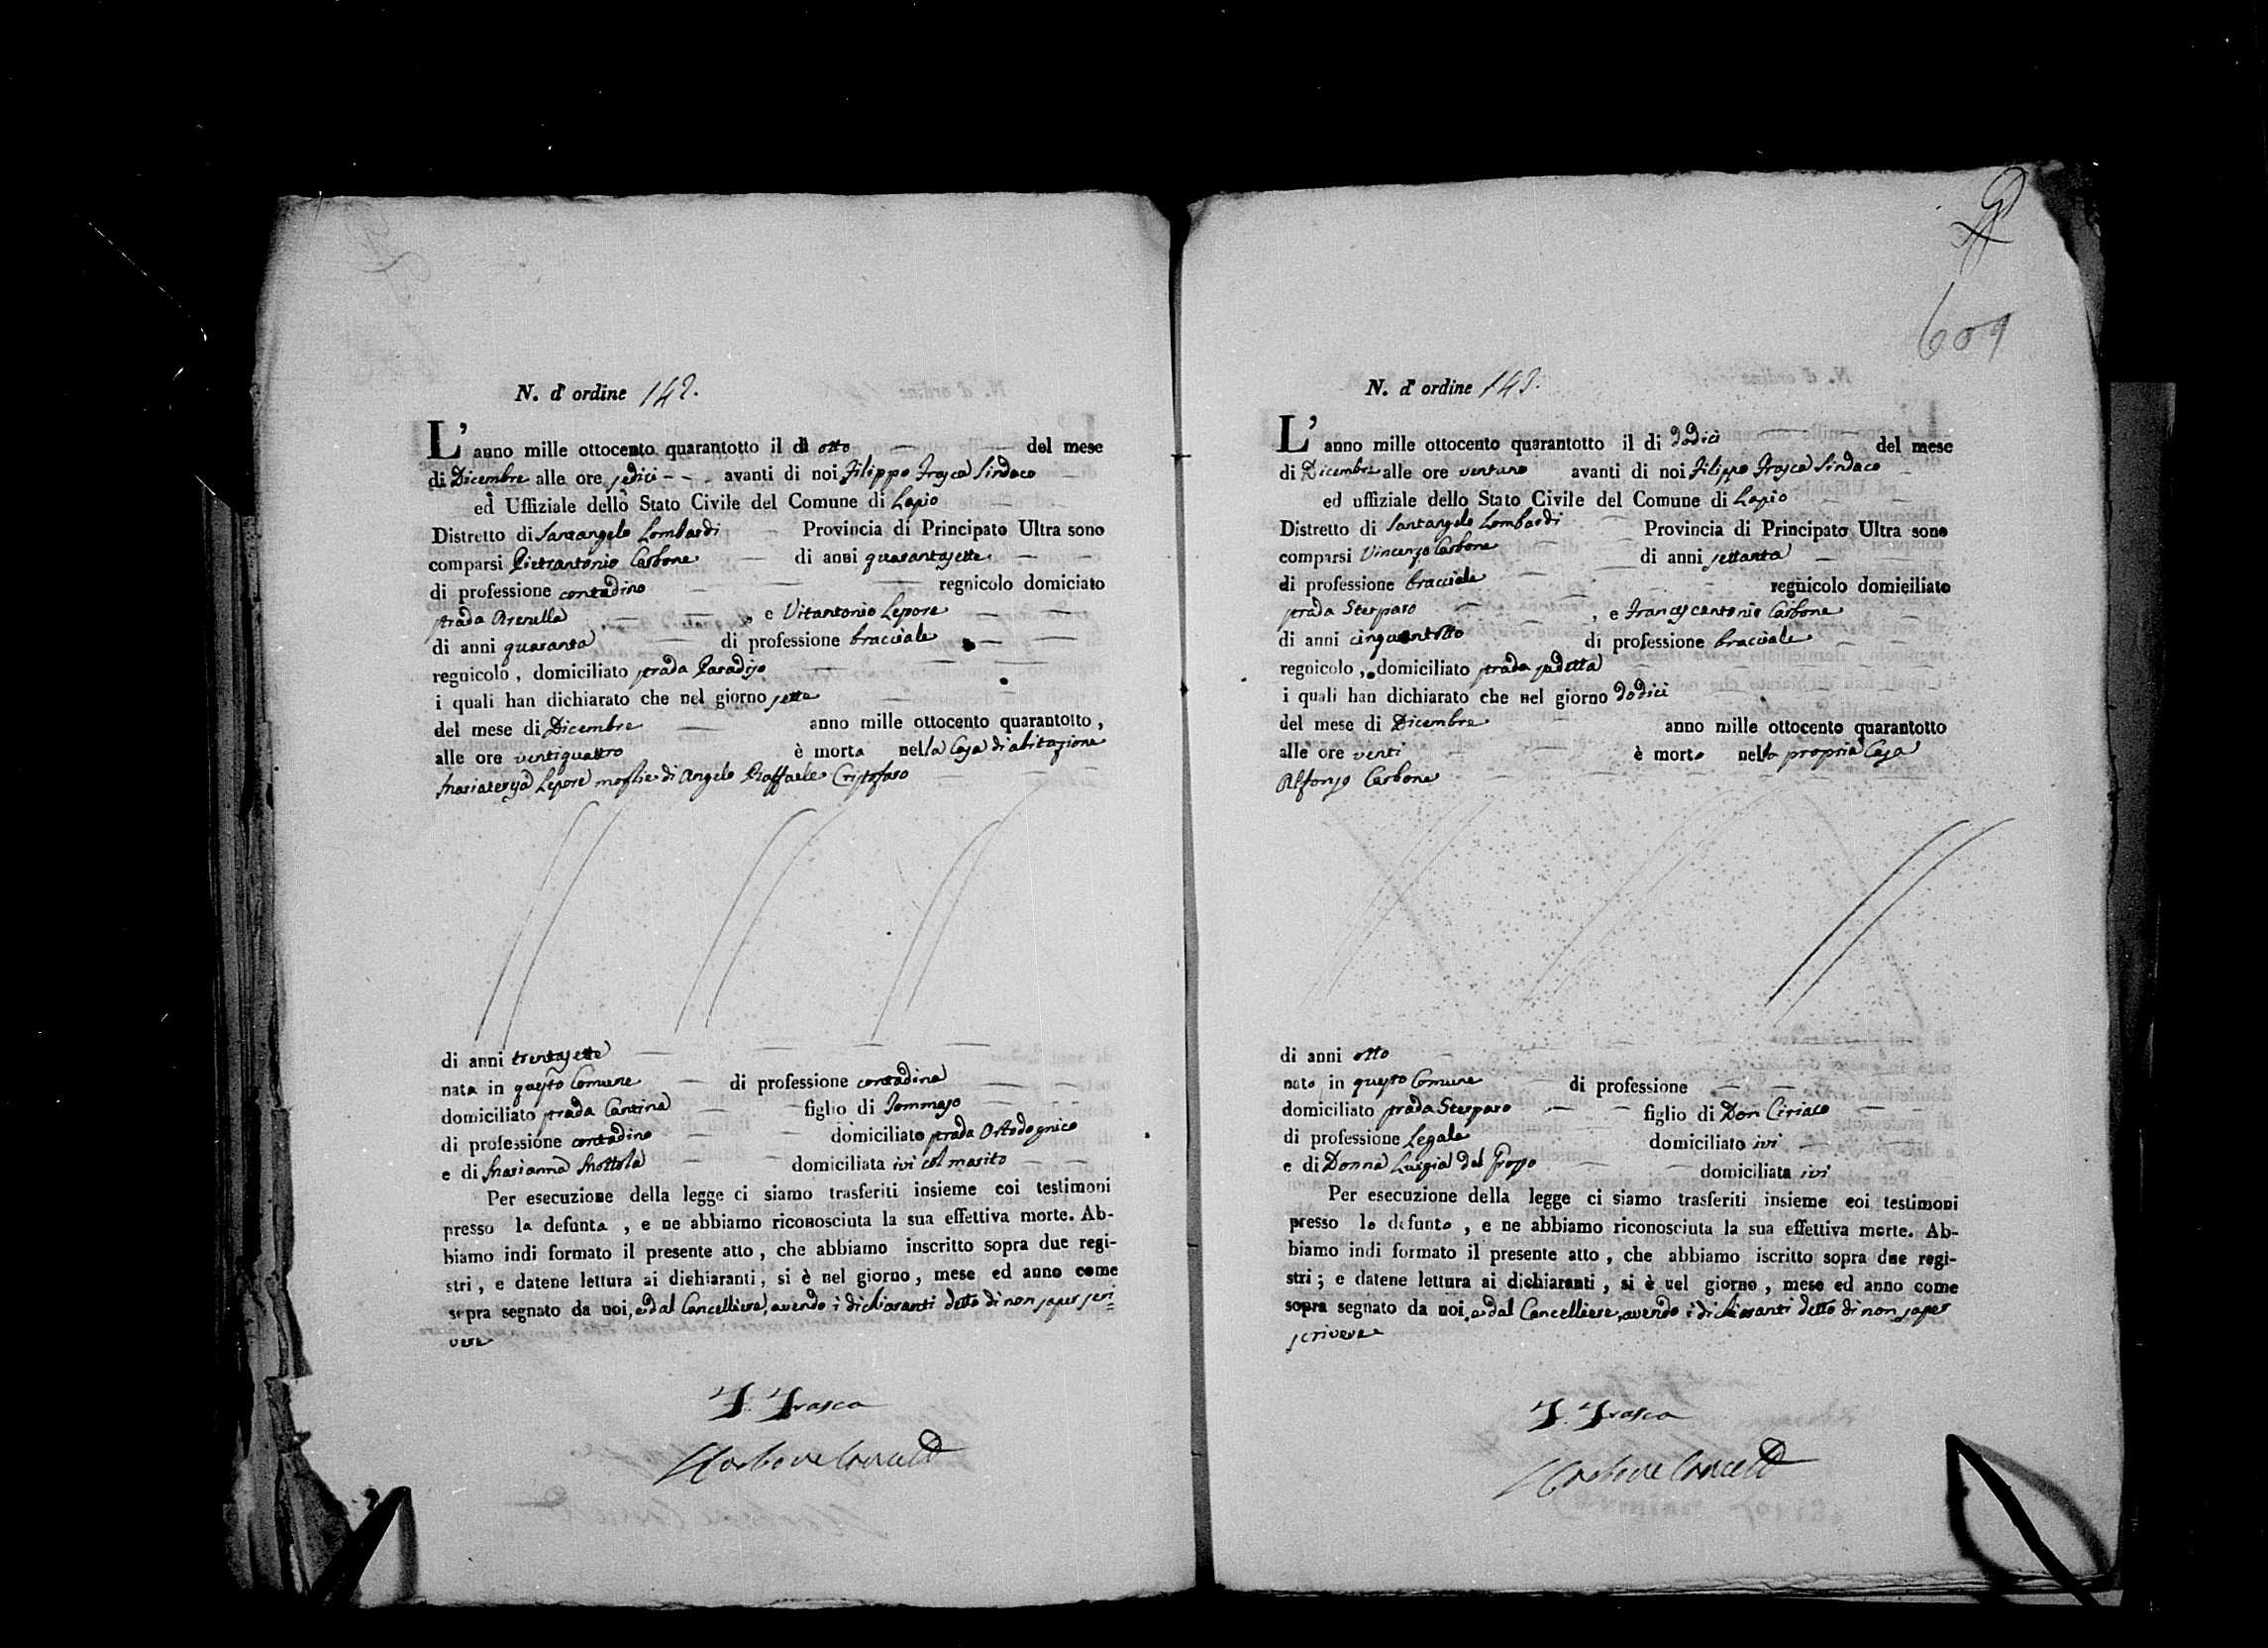 N. d' ordine 142.
L' anno mille ottocento quarantotto il dì otto del mese
di Dicembre alle ore sedici avanti di noi Filippo Frasca Sindaco
ed Uffiziale dello Stato Civile del Comune di Lapio
Distretto di Santangelo Lombardi Provincia di Principato Ultra sono
comparsi Pietrantonio Carbone di anni quarantasette
di professione contadino regnicolo domiciato
strada Arenella , e Vitantonio Lepore
di anni quaranta di professione bracciale
regnicolo , domiciliato strada Paradiso
i quali han dichiarato che nel giorno sette
del mese di Dicembre anno mille ottocento quarantotto ,
alle ore ventiquattro è morta nella Casa di abitazione
Mariateresa Lepore moglie di Angelo Raffaele Cristofaro
di anni trentasette
nata in questo Comune di professione contadina
domiciliato strada Cantina figlio di Tommaso
di professione contadino domiciliato strada Ortodognico
e di Marianna Mottola domiciliata ivi col marito
Per esecuzione della legge ci siamo trasferiti insieme coi testimoni
presso la defunta , e ne abbiamo riconosciuta la sua effettiva morte. Ab-
biamo indi formato il presente atto , che abbiamo inscritto sopra due regi-
stri , e datene lettura ai dichiaranti , si è nel giorno , mese ed anno come
sopra segnato da noi, e dal Cancelliere, avendo i dichiaranti detto di non saper scri=
vere
F. Frasca
Carbone Cancell
601
N. d' ordine 143.
L' anno mille ottocento quarantotto il di dodici del mese
di Dicembre alle ore ventuno avanti di noi Filippo Frasca Sindaco
ed uffiziale dello Stato Civile del Comune di Lapio
Distretto di Santangelo Lombardi Provincia di Principato Ultra sono
comparsi Vincenzo Carbone di anni settanta
di professione bracciale regnicolo domiciliato
strada Sterparo , e Francescantonio Carbone
di anni cinquantotto di professione bracciale
regnicolo , domiciliato strada sudetta
i quali han dichiarato che nel giorno dodici
del mese di Dicembre anno mille ottocento quarantotto
alle ore venti è morto nella propria Casa
Alfonso Carbone
di anni otto
nato in questo Comune di professione
domiciliato strada Sterparo figlio di Don Ciriaco
di professione Legale domiciliato ivi
e di Donna Luigia del Grosso domiciliata ivi
Per esecuzione della legge ci siamo trasferiti insieme coi testimoni
presso lo defunto , e ne abbiamo riconosciuta la sua effettiva morte. Ab-
biamo indi formato il presente atto , che abbiamo iscritto sopra due regi-
stri ; e datene lettura ai dichiaranti , si è nel giorno , mese ed anno come
sopra segnato da noi, e dal Cancelliere, avendo i dichiaranti detto di non saper
scrivere
F. Frasca
Carbone Cancell